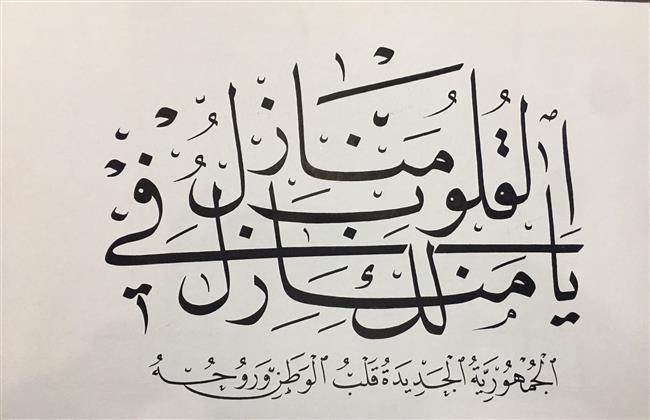 لك يا منازل في القلوب منازل
الجُمْهُورِيَّةُ الجَدِيدَةُ قَلْبُ الوَطَنِ وَرُوحُهُ